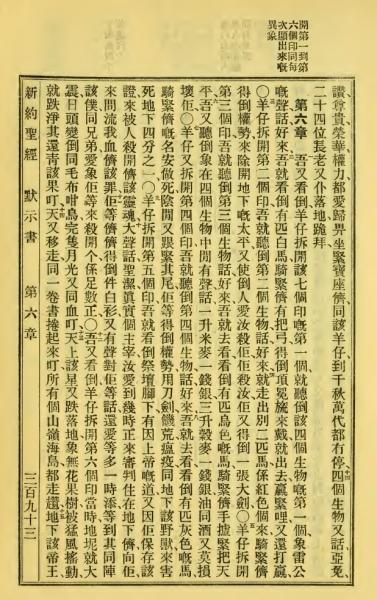 開第一到第
六個印同每
次顯出來嘅
異象
讚尊貴榮華權力都愛歸畀坐緊寶座儕同該羊仔到千秋萬代都有停四個生物又話亞孟
二十四位長老又仆落地跪拜
第六章 吾又看倒羊仔拆開該七個印嘅第一個就聽倒該四個生物嘅第一個象雷公
嘅聲話好來吾就看倒有匹白馬騎緊儕有把弓得倒項冕旒來戴就出去贏緊哩又還打贏
〇羊仔拆開第二個印吾就聽倒第二個生物話好來就走出別二匹馬係紅色個來騎緊儕
得倒權勢來除開地下嘅太平又使倒人愛汝殺佢佢殺汝佢又得倒一張大劍〇羊仔拆開
第三個印吾就聽倒第三個生物話好來吾就去看看倒有匹烏色嘅馬騎緊儕手揸緊把天
平吾又聽倒象在四個生物中間有聲話一升米麥一錢銀三升穀麥一錢銀油同酒又莫損
壞佢〇羊仔又拆開第四個印吾就聽倒第四個生物話好來吾就去看看倒有匹灰色嘅馬
騎緊儕嘅名安做死陰間又跟緊其尾佢等得倒權勢用刀劍饑荒瘟疫同地下該野獸來害
死地下四分之一〇羊仔拆開第五個印吾就看倒祭壇腳下有因上帝嘅道又因佢保存該
證來被人殺開儕該靈魂大聲話聖潔眞實個主宰汝愛到幾時正來審判住在地下儕向佢
來問流我血儕該罪佢等儕儕得倒件白衫又有聲對佢等話還愛等多一時添等到其同陣
該僕同兄弟愛象佢等來殺開个係足數正〇吾又看倒羊仔拆開第六個印當時地坭就大
震日頭變倒同毛布咁烏完隻月光又同血咁天上該星又跌落地象無花果樹被猛風搖動
就跌淨其還青該果咁天又移走同一卷書捲起來咁所有個山嶺海島都走趲地下該帝王
新約聖經 默示書 第六章 三百九十三